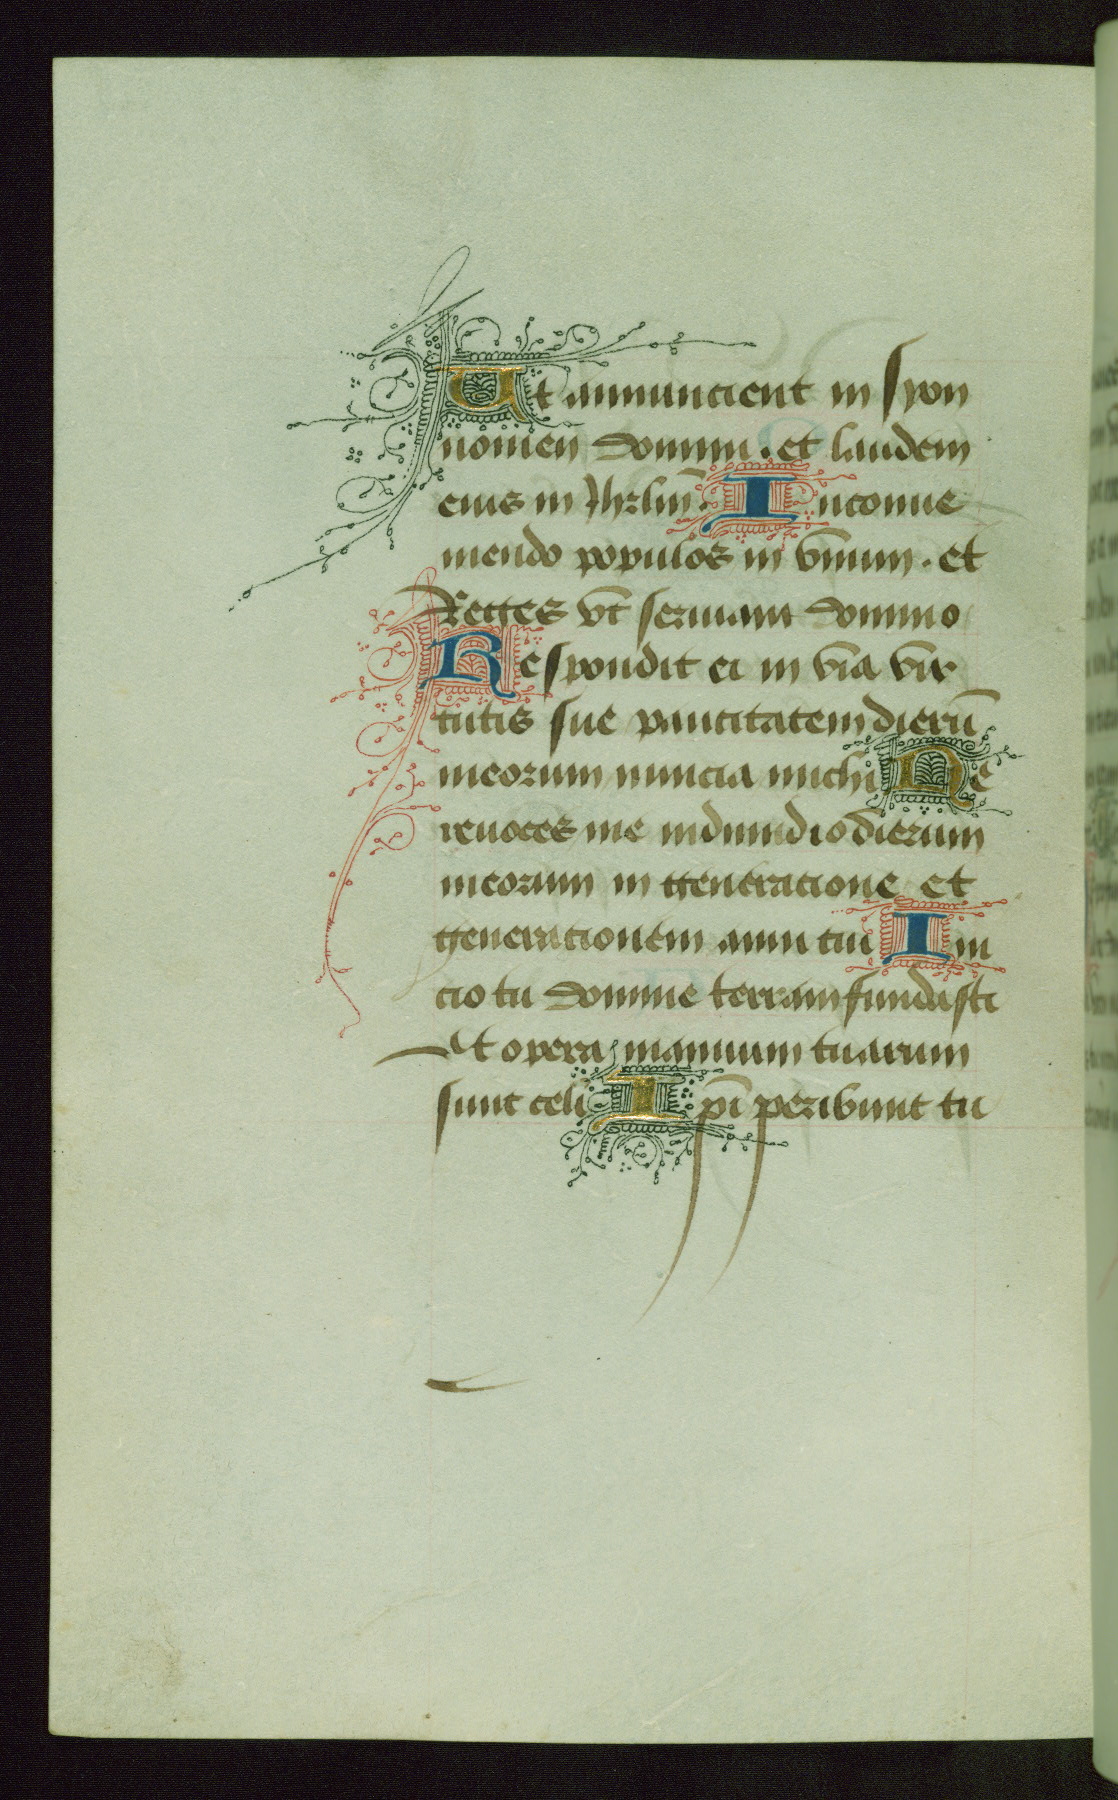 Ut annuncient in syon
nomen domini . et laudem
eius in Jhrlm̄. In conue
niendo populos in vnum . et
Reges vt seruiant domino
Respondit ei in via vir
tutis sue paucitatem dierū
meorum nuncia michi Ne
reuoces me in dimidio dierum
meorum in generatione et
generationem anni tui Ini
cio tu domine terram fundasti
Et opera manuum tuarum
sunt celi Ip̄i peribunt tu